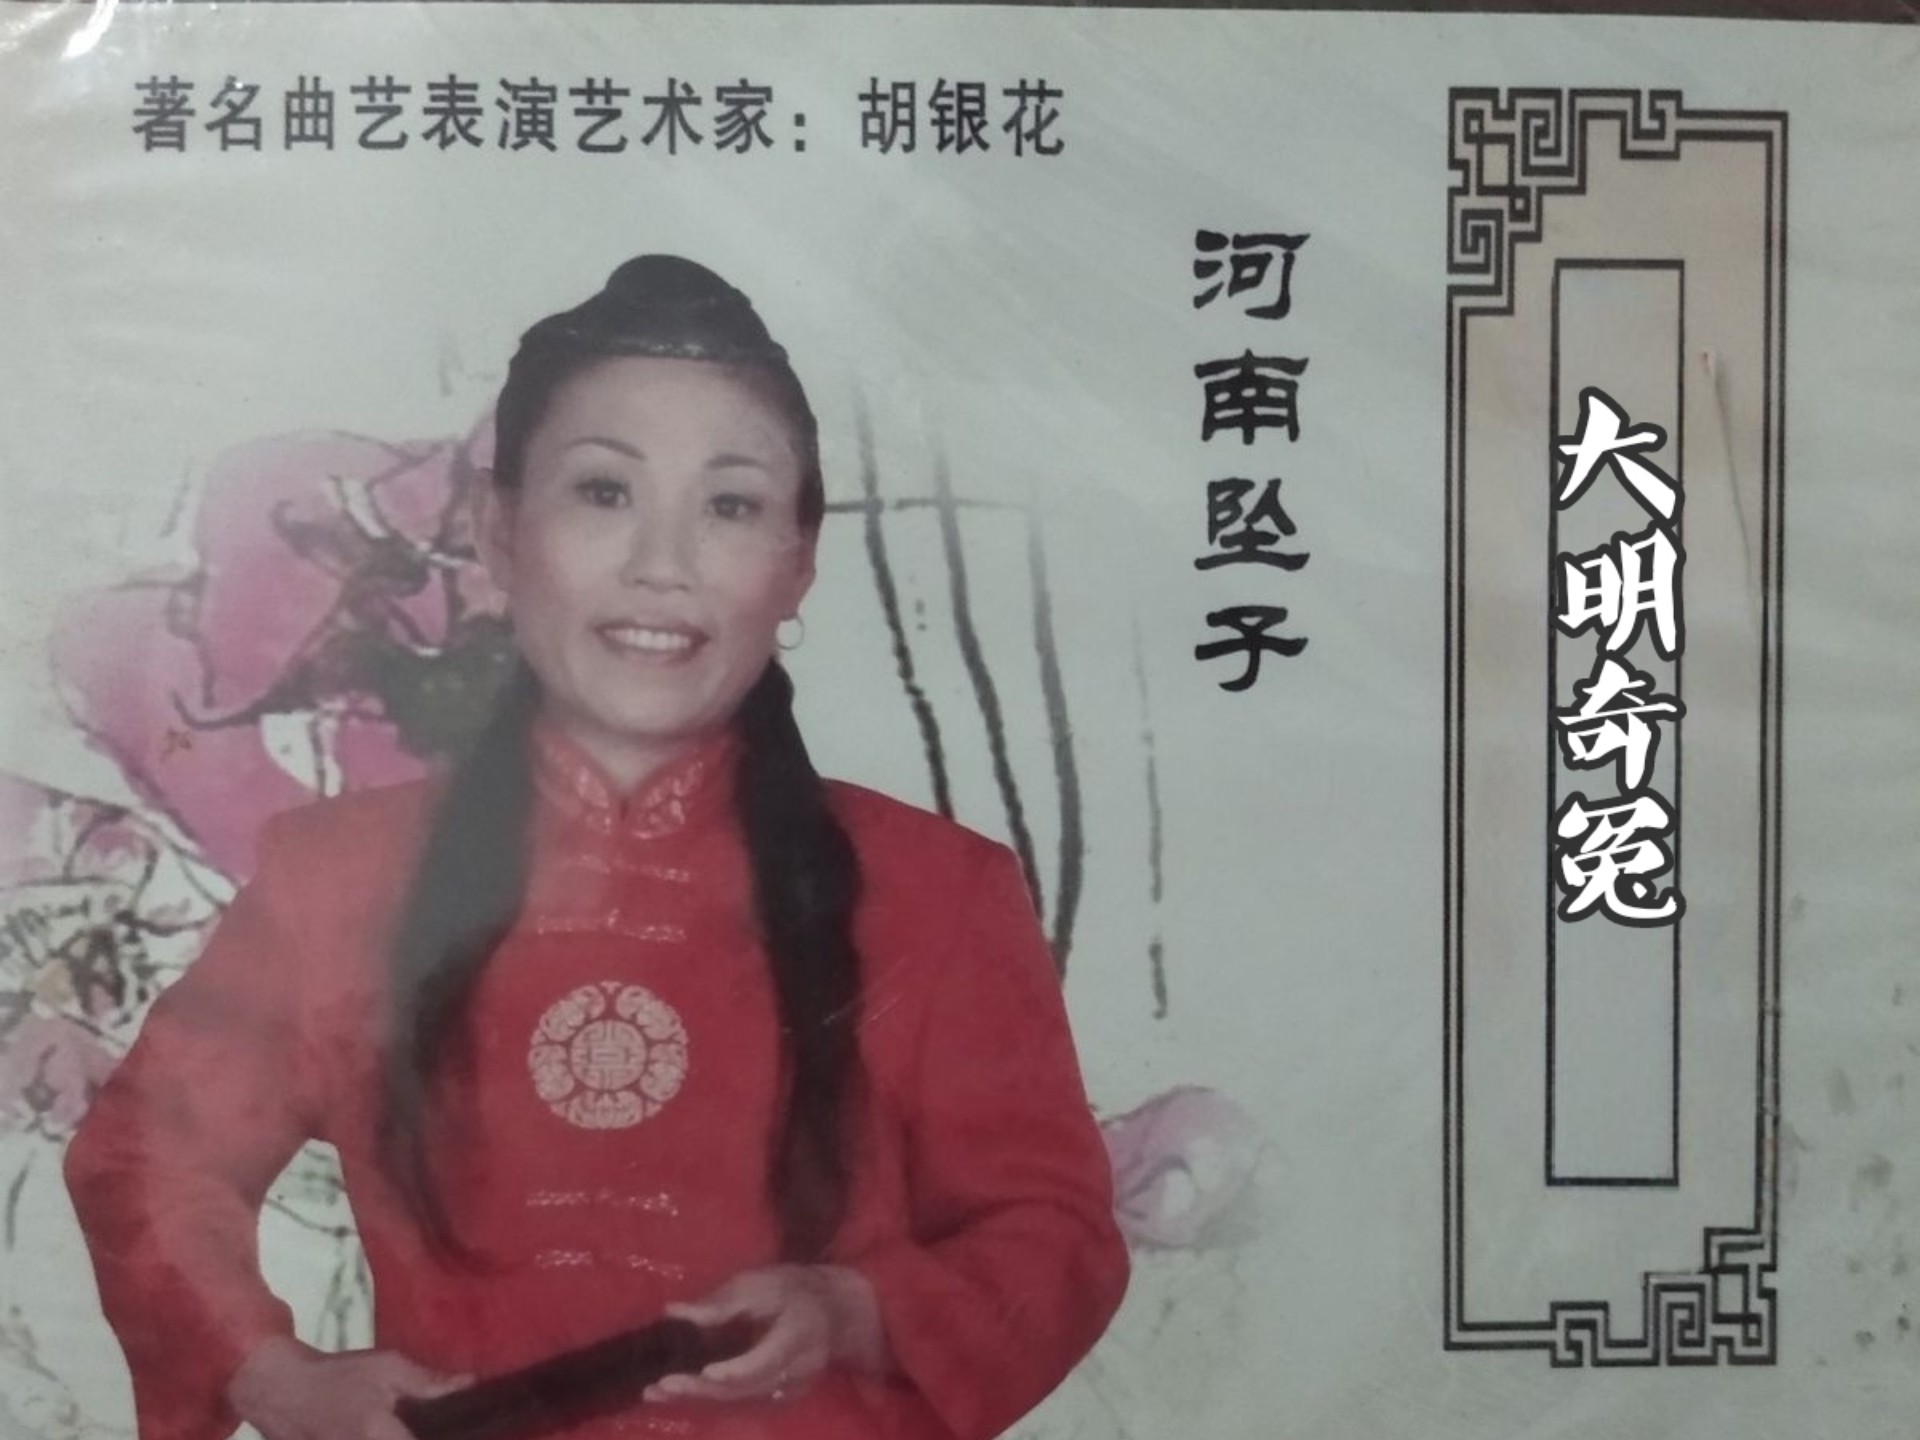 著名曲艺表演艺术家：胡银花
河南坠子
大明奇冤